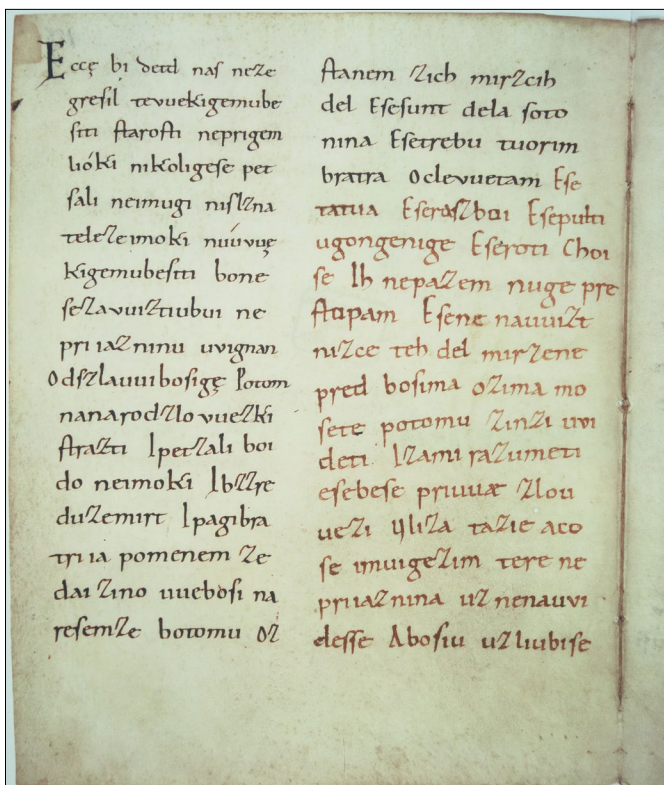 Eccę bi detd naſ neze
greſil tevuekigemube
ſiti ſtaroſti neprigem
lióki nikoligeſe pet
ſali neimugi niſlzna
teleZeimoki núúvuę
kigemubeſiti bone
ſeZavuiZtiubui ne
priiaZninu uvignan
OdſZlauuiboſigę Potom
nanarodZlovueZki
ſtraZti IpetZali boi
do neimoki IbZZre
duZemirt Ipagibra
triia pomenem Ze
dai Zino uueboſi na
reſemZe botomu oZ
ſtanem Zich mirZcih
del Eſeſunt dela ſoto
nina Eſetrebu tuorim
bratra Oclevuetam Eſe
tatua EſeraſZboi Eſepulti
ugongenige Eſeroti Choi
ſe Ih nepaZem nuge pre
ſtopam Eſene nauuiZt
niZce teh del mirZene
pred boſima oZima mo
ſete potomu ZinZi uvi
deti IZami raZumeti
eſebeſe priuuæ Zlou
ueZi UliZa taZie aco
ſe imuigeZim tere ne
priiaZnina uZnenauvi
deſſe Aboſiu uZliubiſe